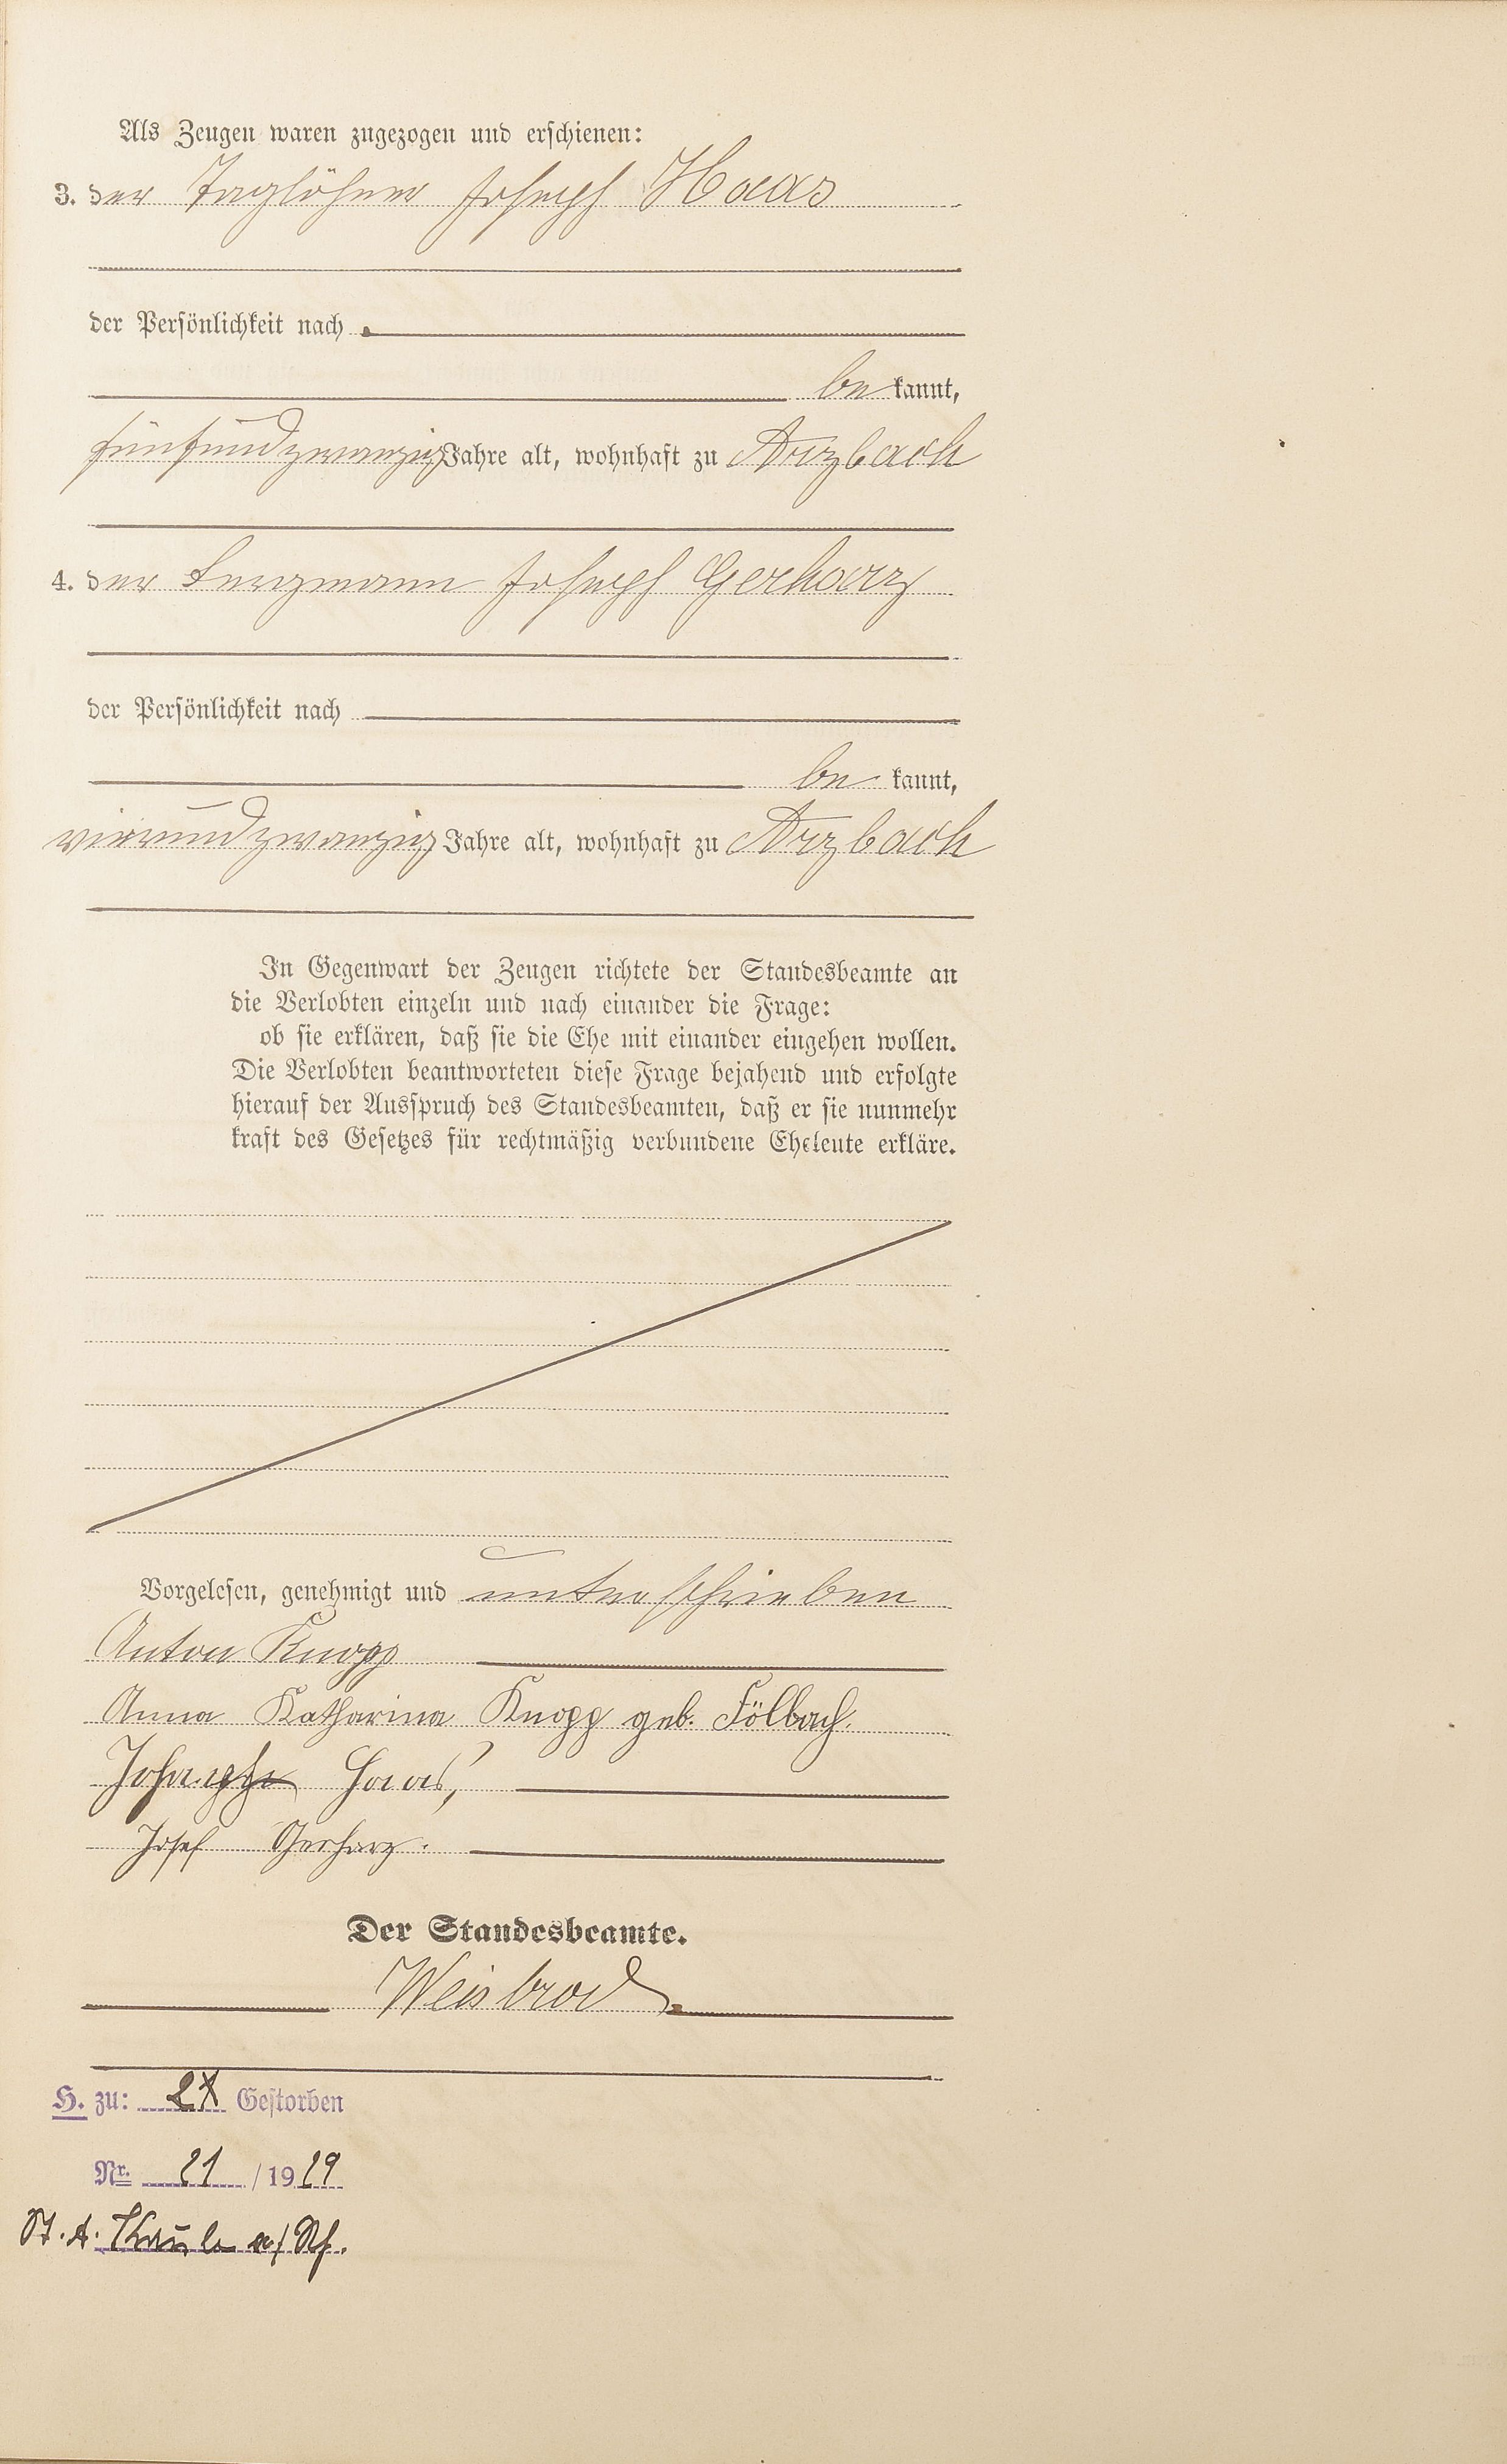 Als Zeugen waren zugezogen und erschienen:
3. der Taglöhner Joseph Haas
der Persönlichkeit nach
be kannt,
fünfundzwanzig Jahre alt, wohnhaft zu Arzbach
4. der Bergmann Joseph Gerharz
der Persönlichkeit nach
be kannt,
vierundzwanzig Jahre alt, wohnhaft zu Arzbach
In Gegenwart der Zeugen richtete der Standesbeamte an
die Verlobten einzeln und nach einander die Frage:
ob sie erklären, daß sie die Ehe mit einander eingehen wollen.
Die Verlobten beantworteten diese Frage bejahend und erfolgte
hierauf der Ausspruch des Standesbeamten, daß er sie nunmehr
kraft des Gesetzes für rechtmäßig verbundene Eheleute erkläre.
Vorgelesen, genehmigt und unterschrieben
Anton Knopp
Anna Katharina Knopp geb. Fölbach.
Haas,
Josef Gerharz.
Der Standesbeamte.
Weisbrod
H. zu: Gestorben
Nr. 21 / 19
St. A.